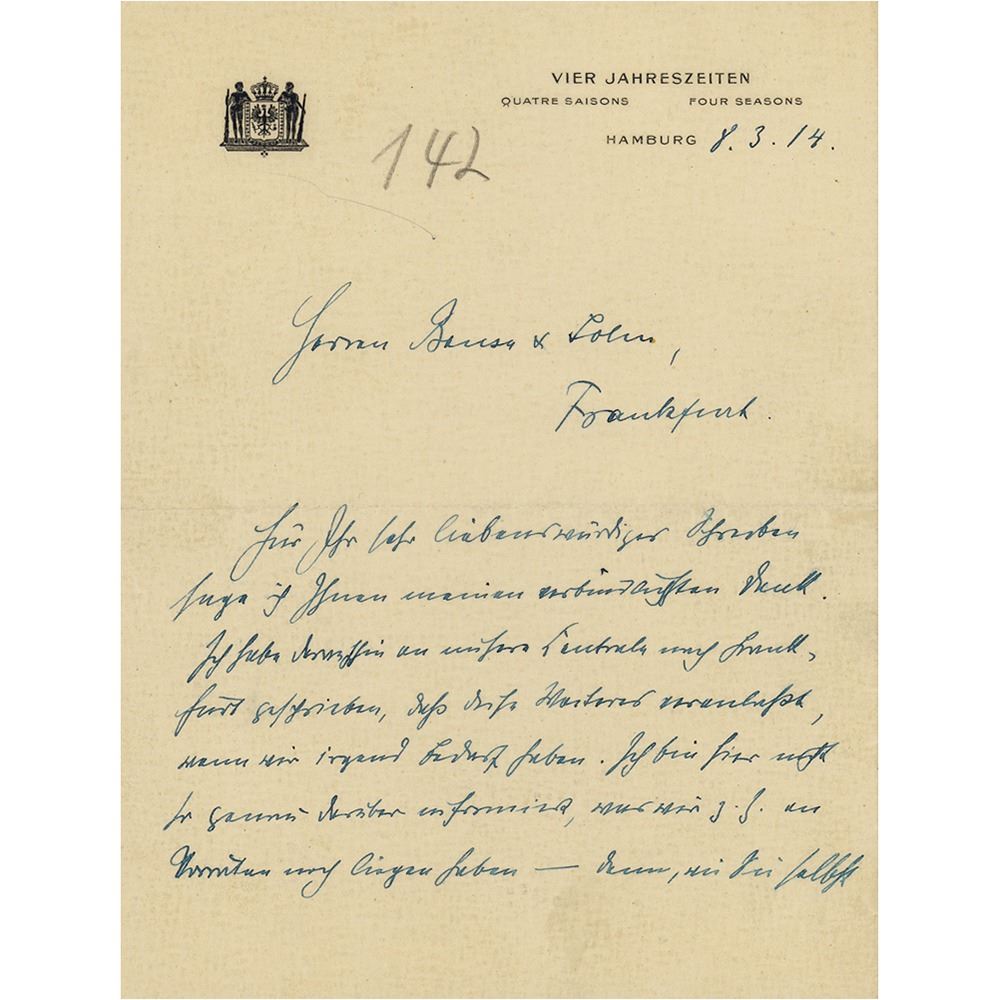 VIER JAHRESZEITEN
QUATRE SAISONS FOUR SEASONS
HAMBURG 8. 3. 14.
142
Herren Bansa & Sohn,
Frankfurt.
Für Ihr sehr liebenswürdiges Schreiben
sage ich Ihnen meinen verbindlichsten Dank.
Ich habe daraufhin an unsere Centrale nach Frank-
furt geschrieben, daß diese Weiteres veranlaßt,
wenn wir irgend Bedarf haben. Ich bin hier nicht
so genau darüber informiert, was wir z. Z. an
Vorräten noch liegen haben — denn, wie Sie selbst